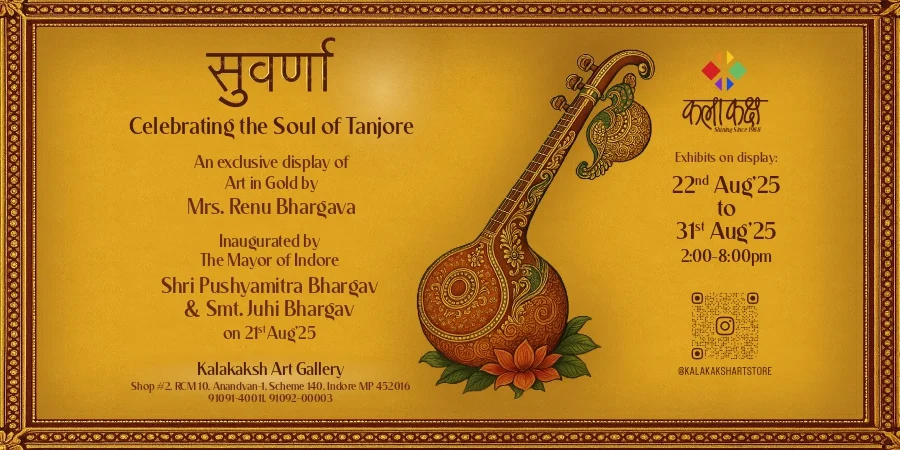 सुवर्णा
Celebrating the Soul of Tanjore
An exclusive display of
Art in Gold by
Mrs. Renu Bhargava
Inaugurated by
The Mayor of Indore
Shri Pushyamitra Bhargav
& Smt. Juhi Bhargav
on 21st Aug'25
Kalakaksh Art Gallery
Shop #2, RCM 10, Anandvan-1, Scheme 140, Indore MP 452016
91091-40011, 91092-00003
कलाकक्ष
Shining Since 1988
Exhibits on display:
22nd Aug'25
to
31st Aug'25
2:00-8:00pm
@KALAKAKSHARTSTORE